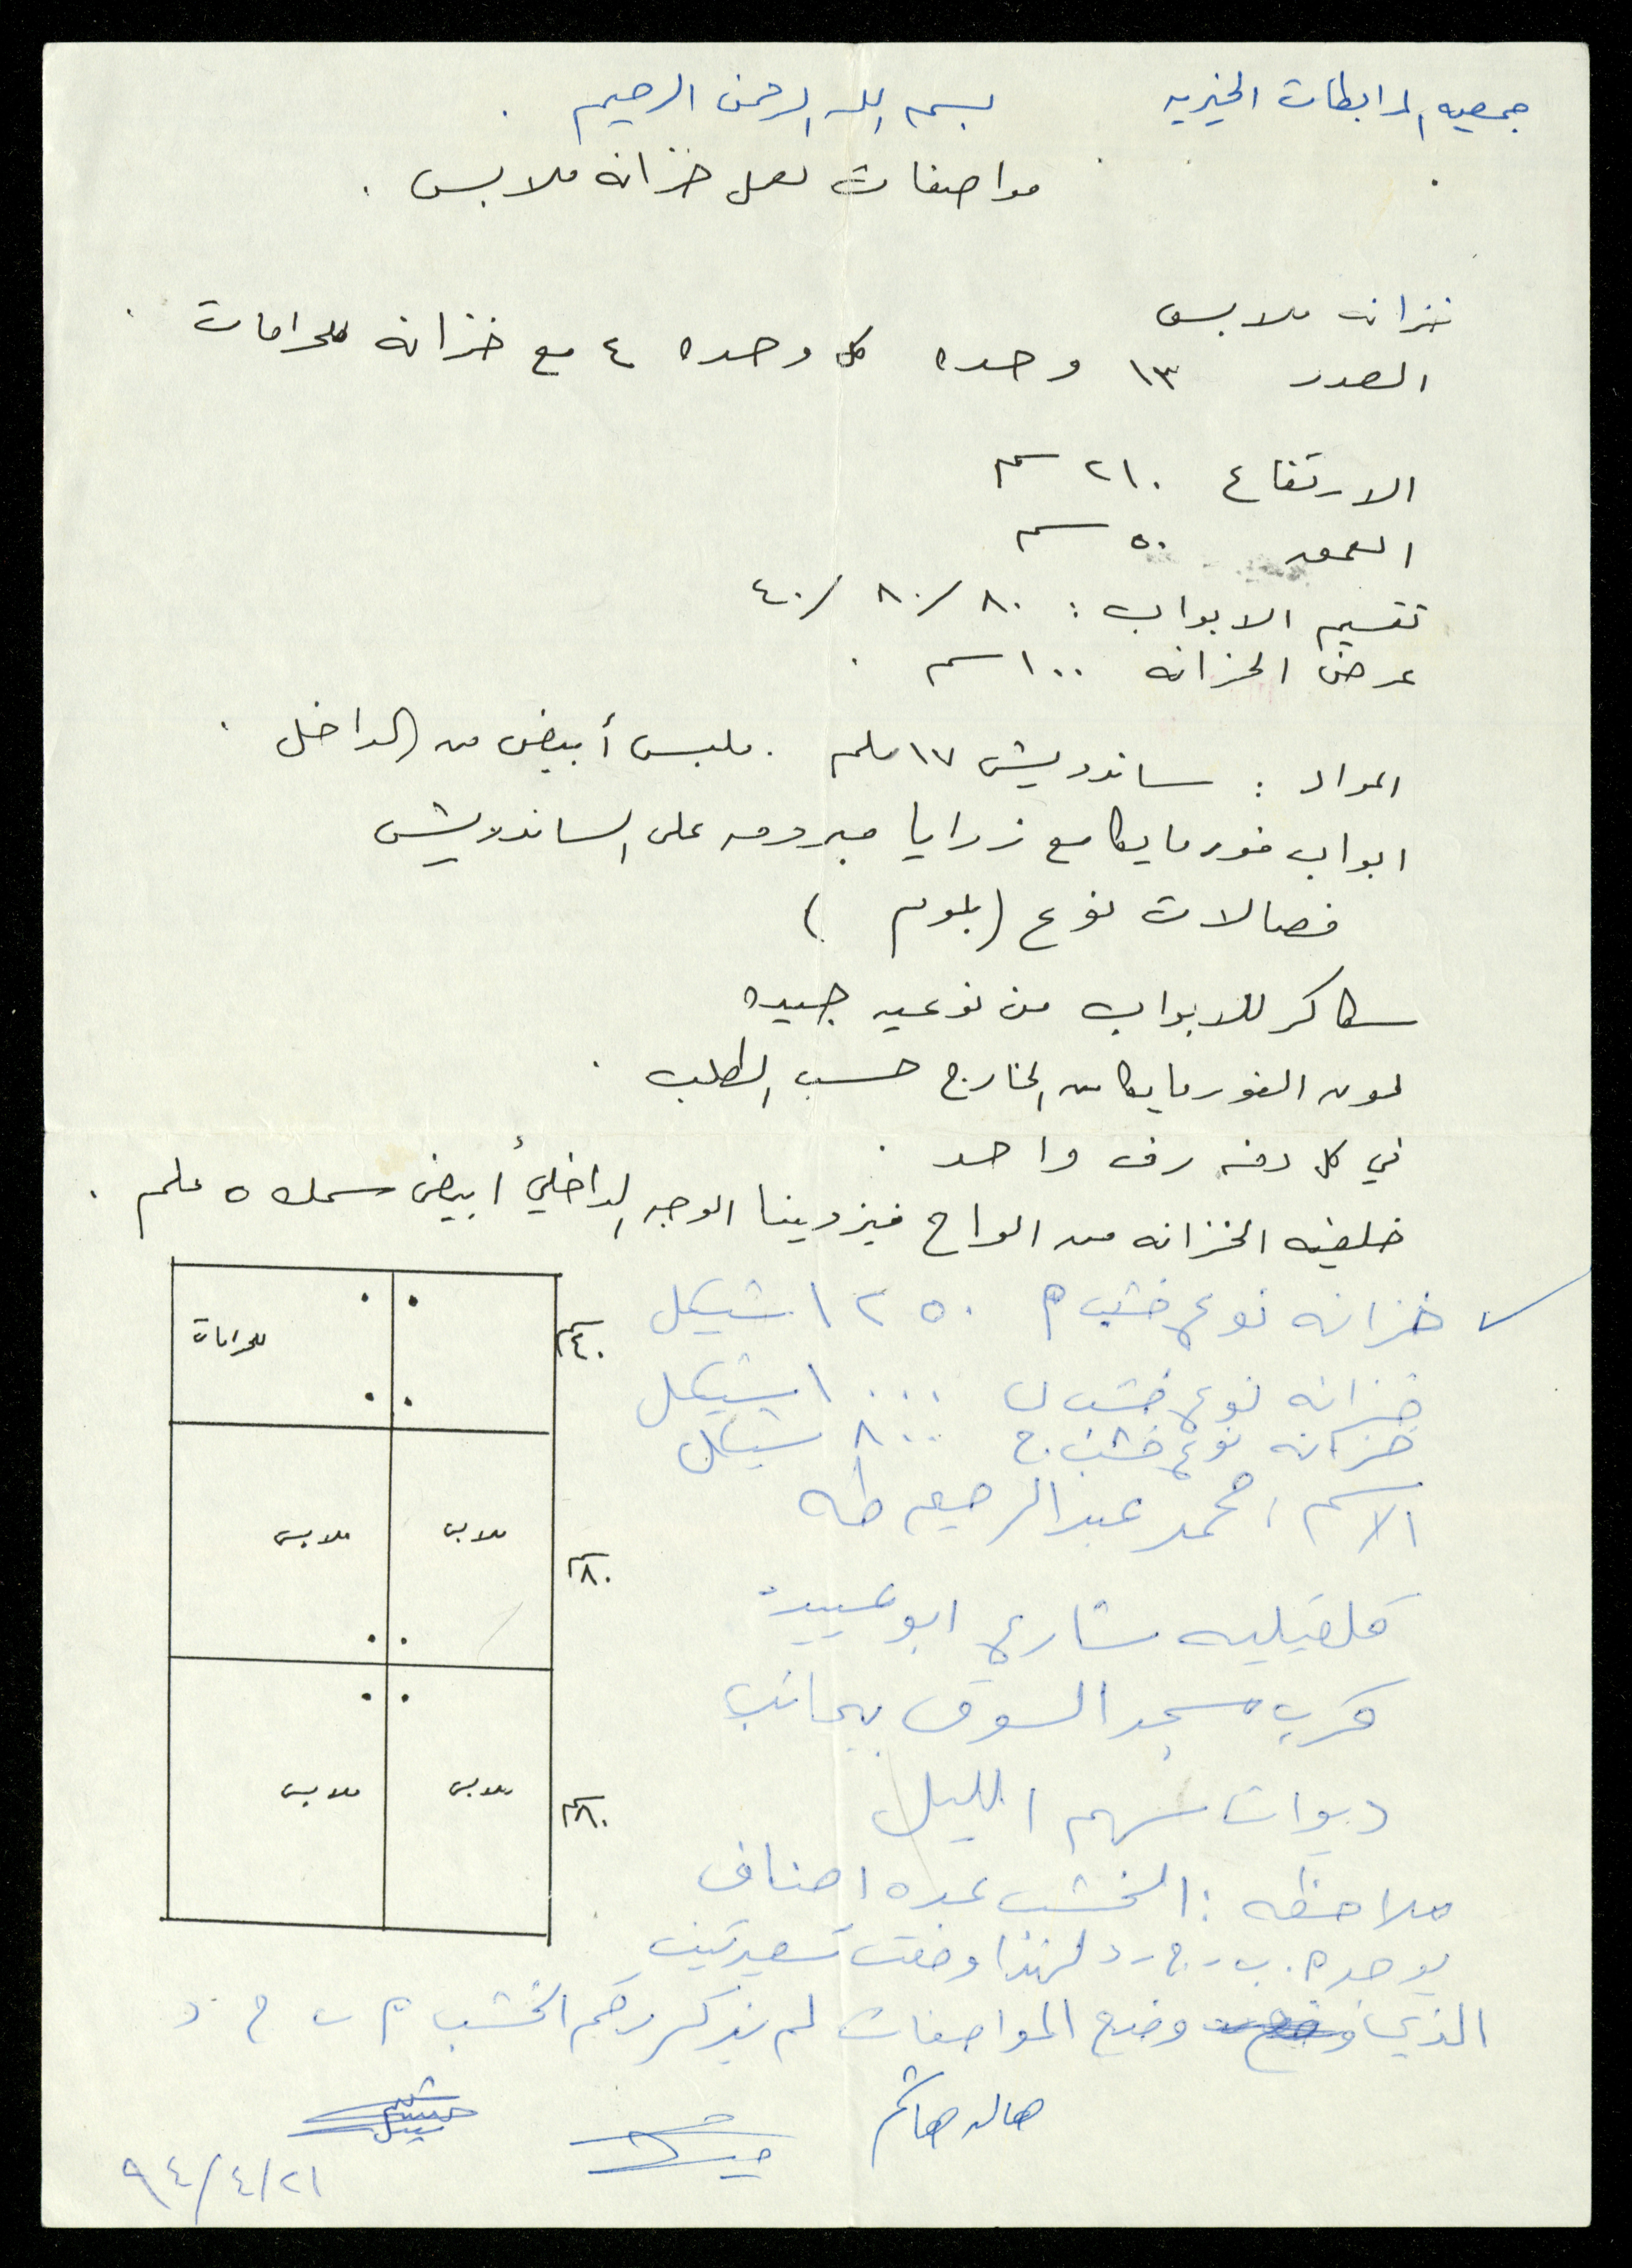 جمعيه المرابطات الخيريه
بسم الله الرحمن الرحيم .
مواصفات لعمل خزانه ملابس .
خزانه ملابس
العدد ١٣ وحده كل وحده ٤ مع خزانه للحرامات .
الارتفاع ٢١٠ سم
العمق ٥٠ سم
تقسيم الابواب : ٨٠/ ٨٠/ ٤٠
عرض الخزانه ١٠٠ سم .
المواد : ساندويش ١٧ ملم . ملبس أبيض من الداخل .
ابواب فورمايكا مع زوايا مبرومه على الساندويش
فصالات نوع (بلوم )
سكاكر للابواب من نوعيه جيده
لون الفورمايكا من الخارج حسب الطلب .
في كل دفه رف واحد .
خلفيه الخزانه من الواح فيزوينا الوجه الداخلي أبيض سمك ٥ ملم .
خزانه نوع خشب م ١٢٥٠ شيكل
خزانه نوع خشب ب ١٠٠٠ شيكل
خزانه نوع خشب ج ٨٠٠ شيكل
الاسم : محمد عبد الرحيم طه
قلقيليه شارع ابو عبيده
قرب مسجد السوق بجانب
ديوان سهم الليل
ملاحظه : الخشب عده اصناف
يوجد م . ب . ج . د لهذا وضعت تسعيرتين
الذي وضع المواصفات لم يذكر رقم الخشب م ب ج د
خالد هاشم
٩٤/٤/٢١
للحرامات
٤٠ سم
ملابس
ملابس
٨٠ سم
ملابس
ملابس
٨٠ سم